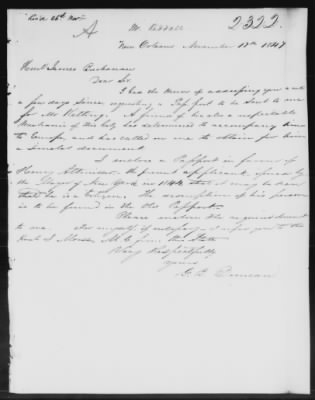 Recd 26th Novr
A
2322
New Orleans November 17th 1847
Honl James Buchanan
Dear Sir
I had the honor of addressing you a note
a few days since requesting a Passport to be sent to me
for Mr A friend of his also a respectable
Mechanic of this City has determined to accompany him
to Europe and has called on me to obtain for him
a similar document
I enclose a Passport in favour of
Henry the present applicant, issued by
the Mayor of New York in 1844 that it may be seen
that he is a Citizen. The description of his person
is to be found in the Old Passport.
Please enclose the required document
to me. For myself, if necessary, I refer you to the
Honl I. Morse, M.C. from this State
Very Respectfully
Yours
G. B. Duncan